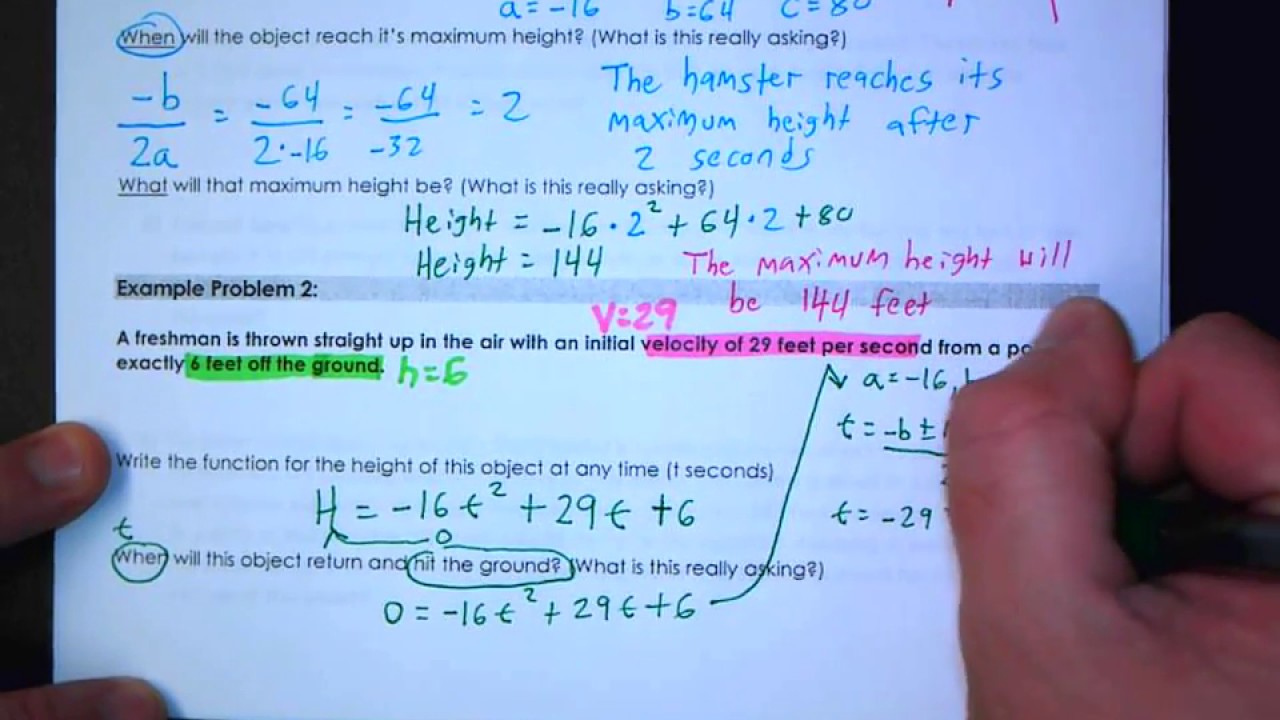 a = -16 b = 64 c = 80
When will the object reach it's maximum height? (What is this really asking?)
-b/2a = -64/2·-16 = -64/-32 = 2
The hamster reaches its
maximum height after
2 seconds
What will that maximum height be? (What is this really asking?)
Height = -16·2² + 64·2 + 80
Height = 144
The maximum height will
be 144 feet
Example Problem 2:
V=29
A freshman is thrown straight up in the air with an initial velocity of 29 feet per second from a
exactly 6 feet off the ground. h=6
a = -16,
t = -b ±
t = -29
Write the function for the height of this object at any time (t seconds)
H = -16t² + 29t + 6
t
0
When will this object return and hit the ground? (What is this really asking?)
0 = -16t² + 29t + 6